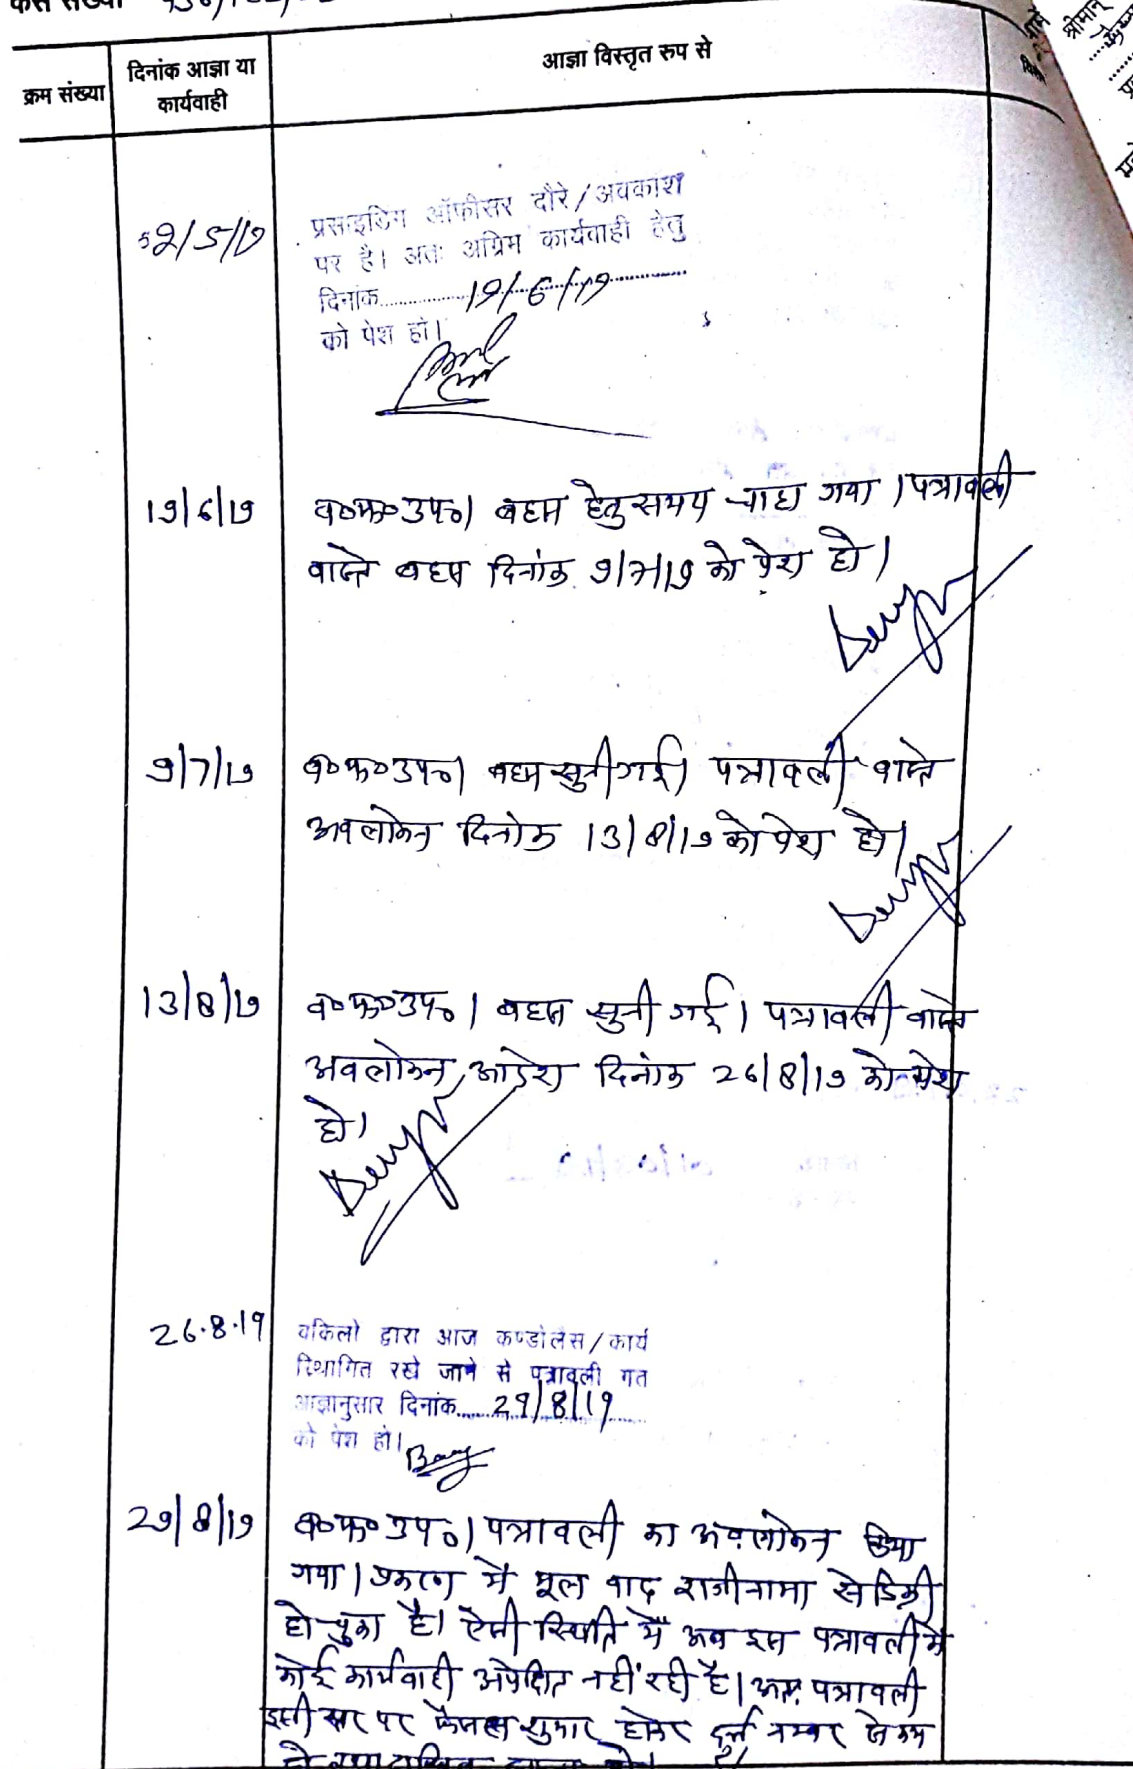 केस संख्या
क्रम संख्या
दिनांक आज्ञा या
कार्यवाही
आज्ञा विस्तृत रुप से
श्रीमान्
2/5/19
प्रसाइडिंग ऑफीसर दौरे/अवकाश
पर है। अतः अग्रिम कार्यवाही हेतु
दिनांक 19/6/19
को पेश हो।
19/6/19
व०फ०उप०। बहस हेतु समय चाहा गया। पत्रावली
वास्ते बहस दिनांक 9/7/19 को पेश हो।
9/7/19
व०फ०उप०। बहस सुनी गई। पत्रावली वास्ते
अवलोकन दिनांक 13/8/19 को पेश हो।
13/8/19
व०फ०उप०। बहस सुनी गई। पत्रावली वास्ते
अवलोकन/आदेश दिनांक 26/8/19 को पेश
हो।
26.8.19
वकिलो द्वारा आज कण्डोलेंस/कार्य
स्थिागित रखे जाने से पत्रावली गत
आज्ञानुसार दिनांक 29/8/19
को पेश हो।
29/8/19
व०फ०उप०। पत्रावली का अवलोकन किया
गया। प्रकरण में मूल वाद राजीनामा से डिक्री
हो चुका है। ऐसी स्थिति में अब इस पत्रावली में
कोई कार्यवाही अपेक्षित नहीं रही है। अतः पत्रावली
इसी स्तर पर फैसल शुमार होकर नम्बर से कम